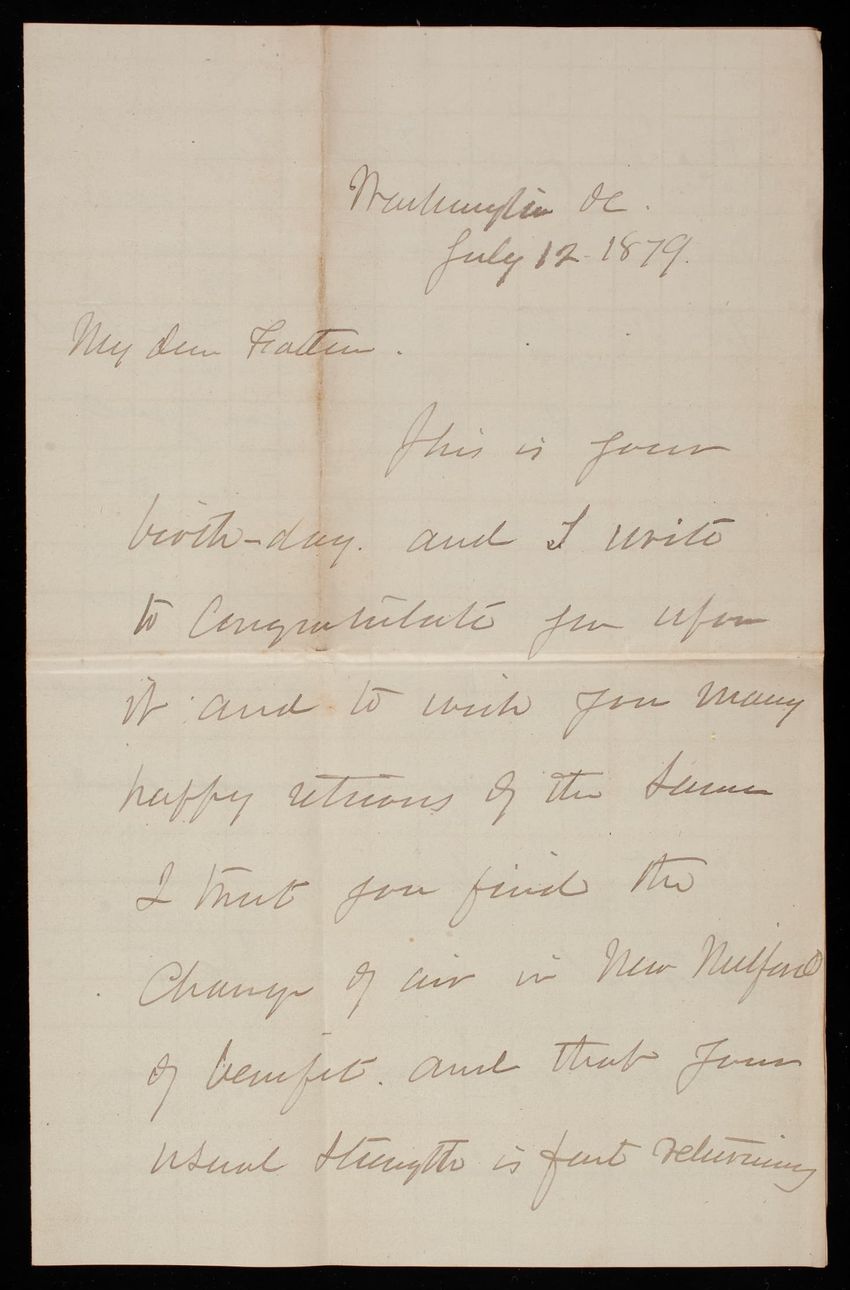 Washington DC.
July 12 - 1879.
My dear Father.
This is your
birth-day. and I write
to Congratulate you upon
it and to wish you many
happy returns of the same
I trust you find the
Change of air in New Milford
of benefit. and that your
usual strength is fast returning